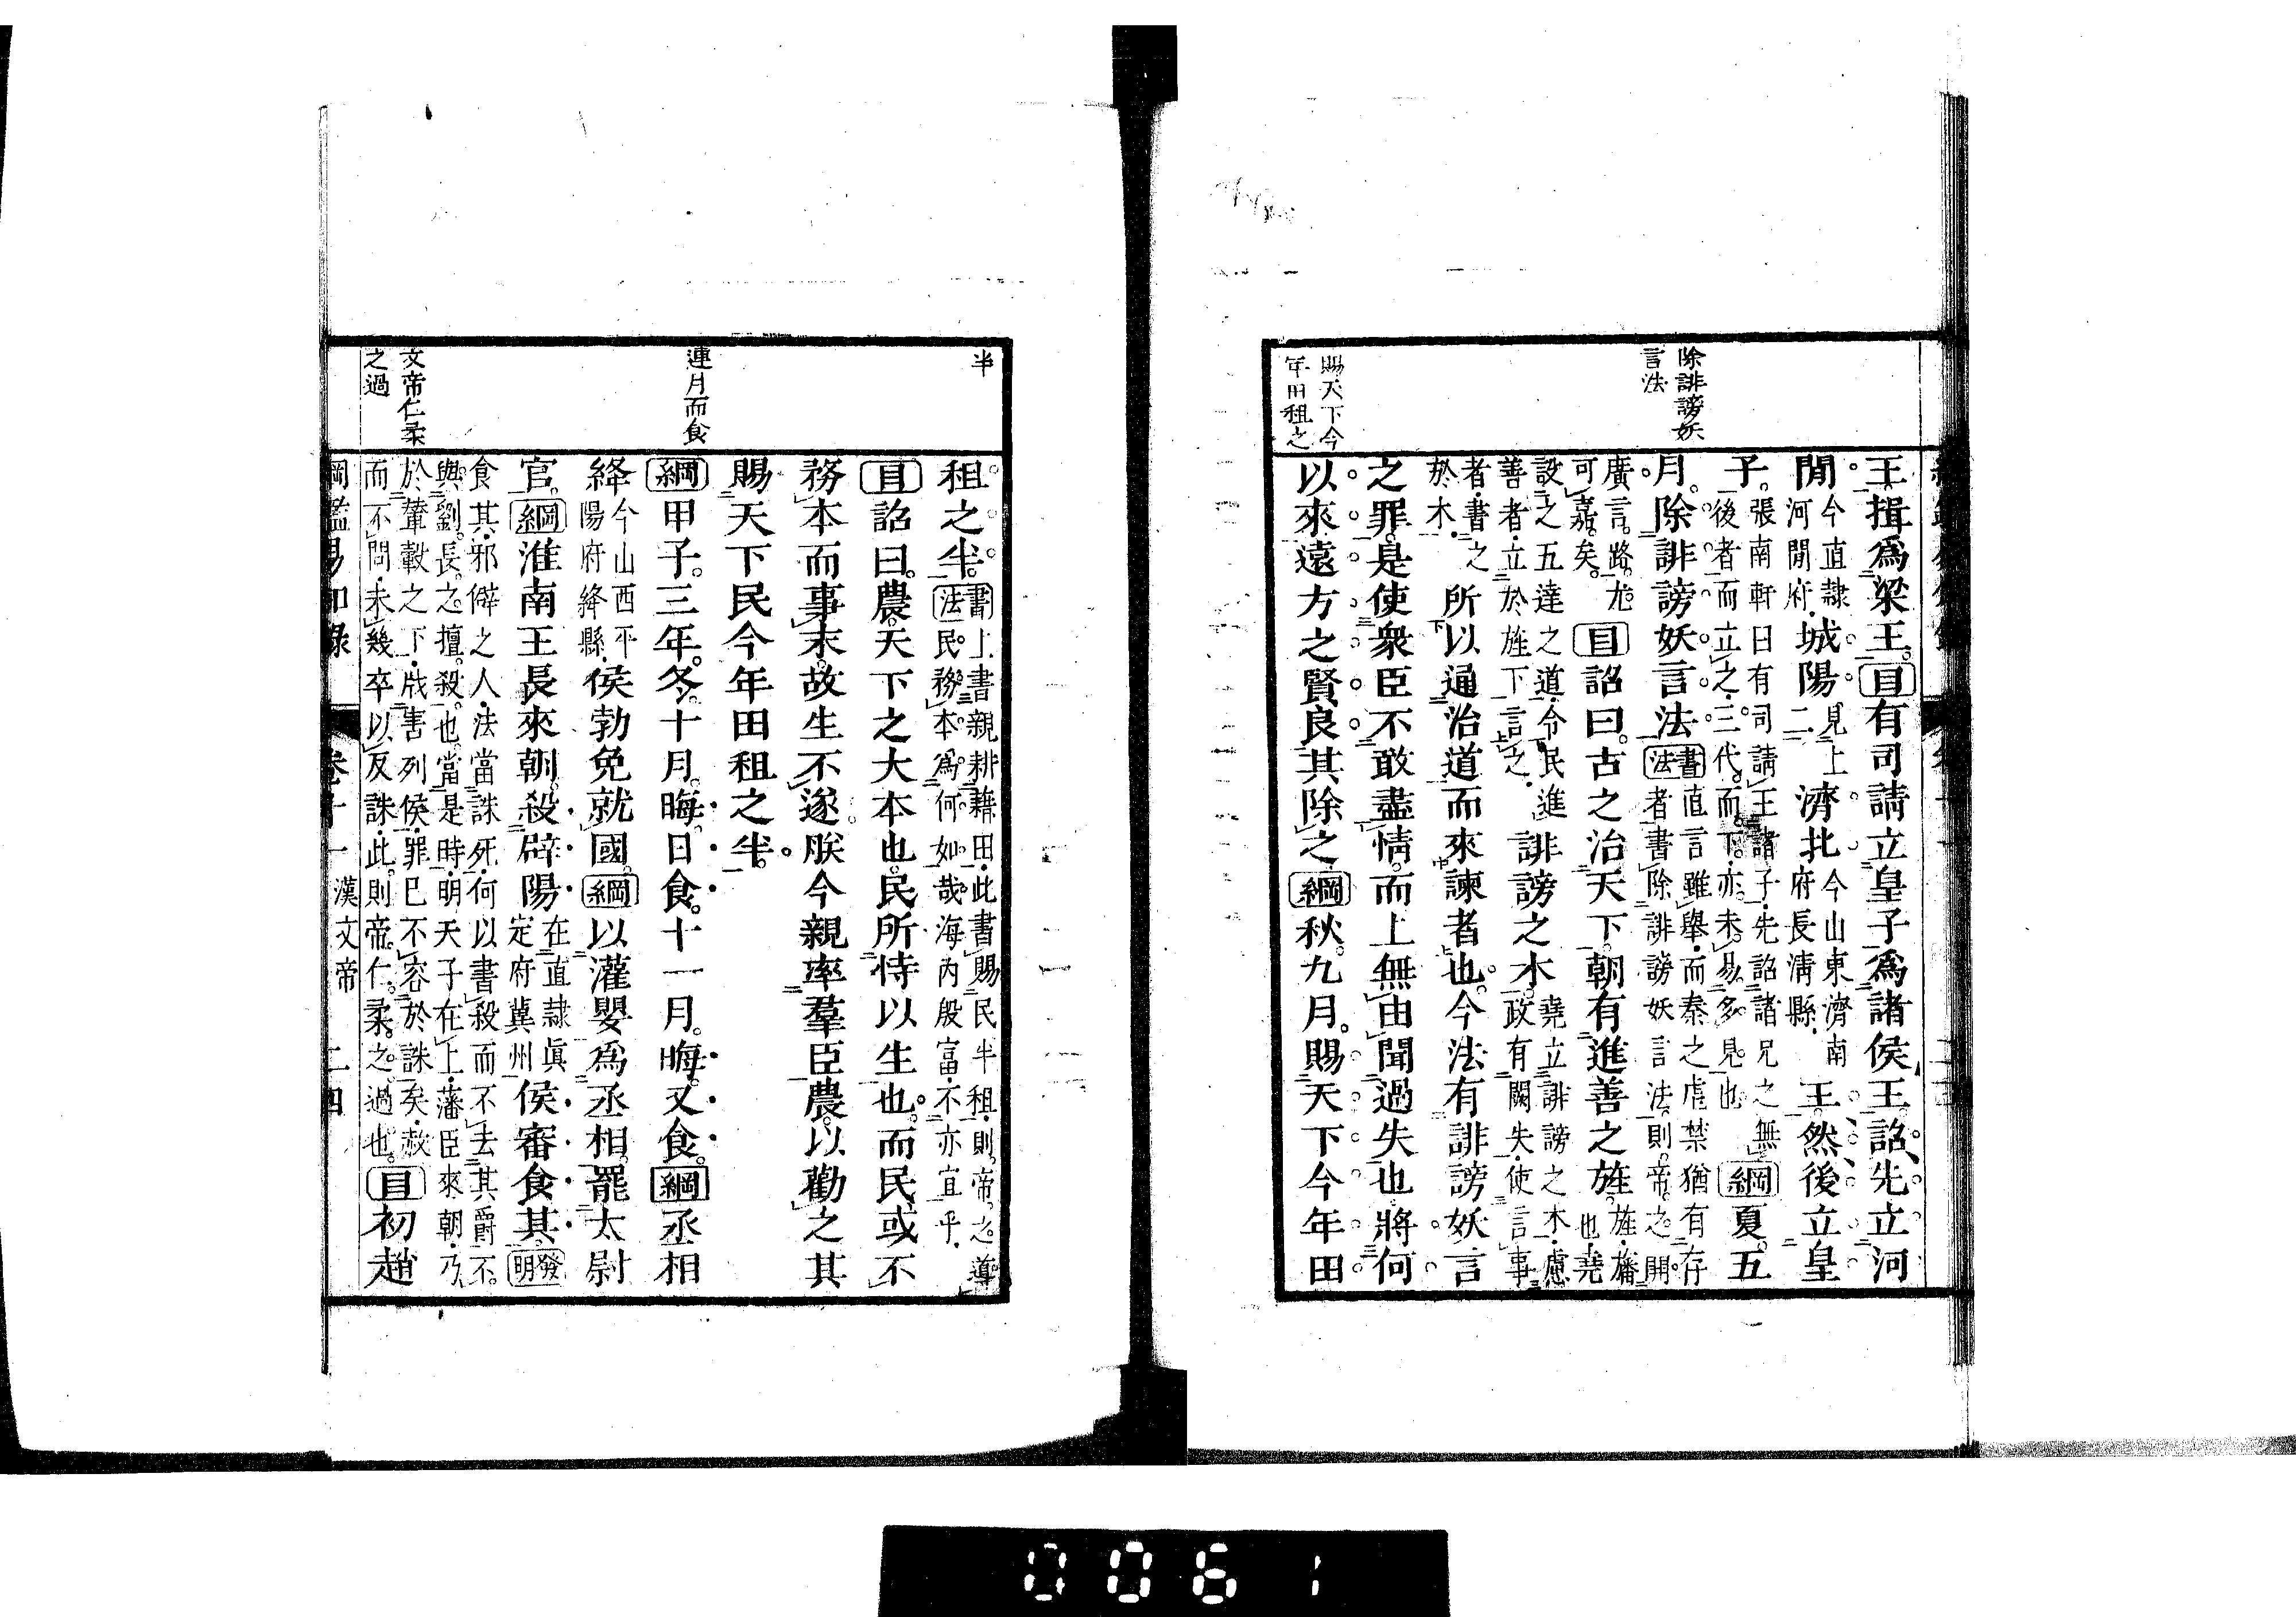 除誹謗妖
言法
賜天下今
年田租之
王揖爲梁王。目有司請立皇子爲諸侯王。詔先立河
閒今直隷河閒府。城陽見上二濟北今山東濟南府長淸縣王。然後立皇
子。張南軒曰有司請王諸子先詔諸兄之無後者而立之三代而下亦未易多見也綱夏。五
月。除誹謗妖言法。書法直言雖舉而秦之虐禁猶有存者書除誹謗妖言法則帝之開
廣言路尤可嘉矣。目詔曰。古之治天下。朝有進善之旌。旌旛也堯
設之五達之道令民進善者立於旌下言之誹謗之木。堯立誹謗之木慮政有闕失使言事
者書之於木所以通治道而來諫者也。今法有誹謗妖言
之罪。是使衆臣不敢盡情。而上無由聞過失也將何
以來遠方之賢良。其除之綱秋。九月。賜天下今年田
半
連月而食
文帝仁柔
之過
租之半。書法上書親耕藉田此書賜民半租則帝之導民務本爲何如哉海內殷富不亦宜乎
目詔曰。農。天下之大本也。民所恃以生也。而民或不
務本而事末。故生不遂。朕今親率羣臣農。以勸之其
賜天下民今年田租之半。
綱甲子。三年。冬。十月。晦。日食。十一月。晦。又食。綱丞相
絳今山西平陽府絳縣侯勃免就國。綱以灌嬰爲丞相。罷太尉
官。綱淮南王長來朝。殺辟陽在直隷眞定府冀州侯審食其。發明
食其邪僻之人法當誅死何以書殺而不去其爵不與劉長之擅殺也當是時明天子在上藩臣來朝乃
於輦轂之下戕害列侯罪已不容於誅矣赦而不問未幾卒以反誅此則帝仁柔之過也。目初趙
綱鑑易知錄 卷十一 漢文帝 二四